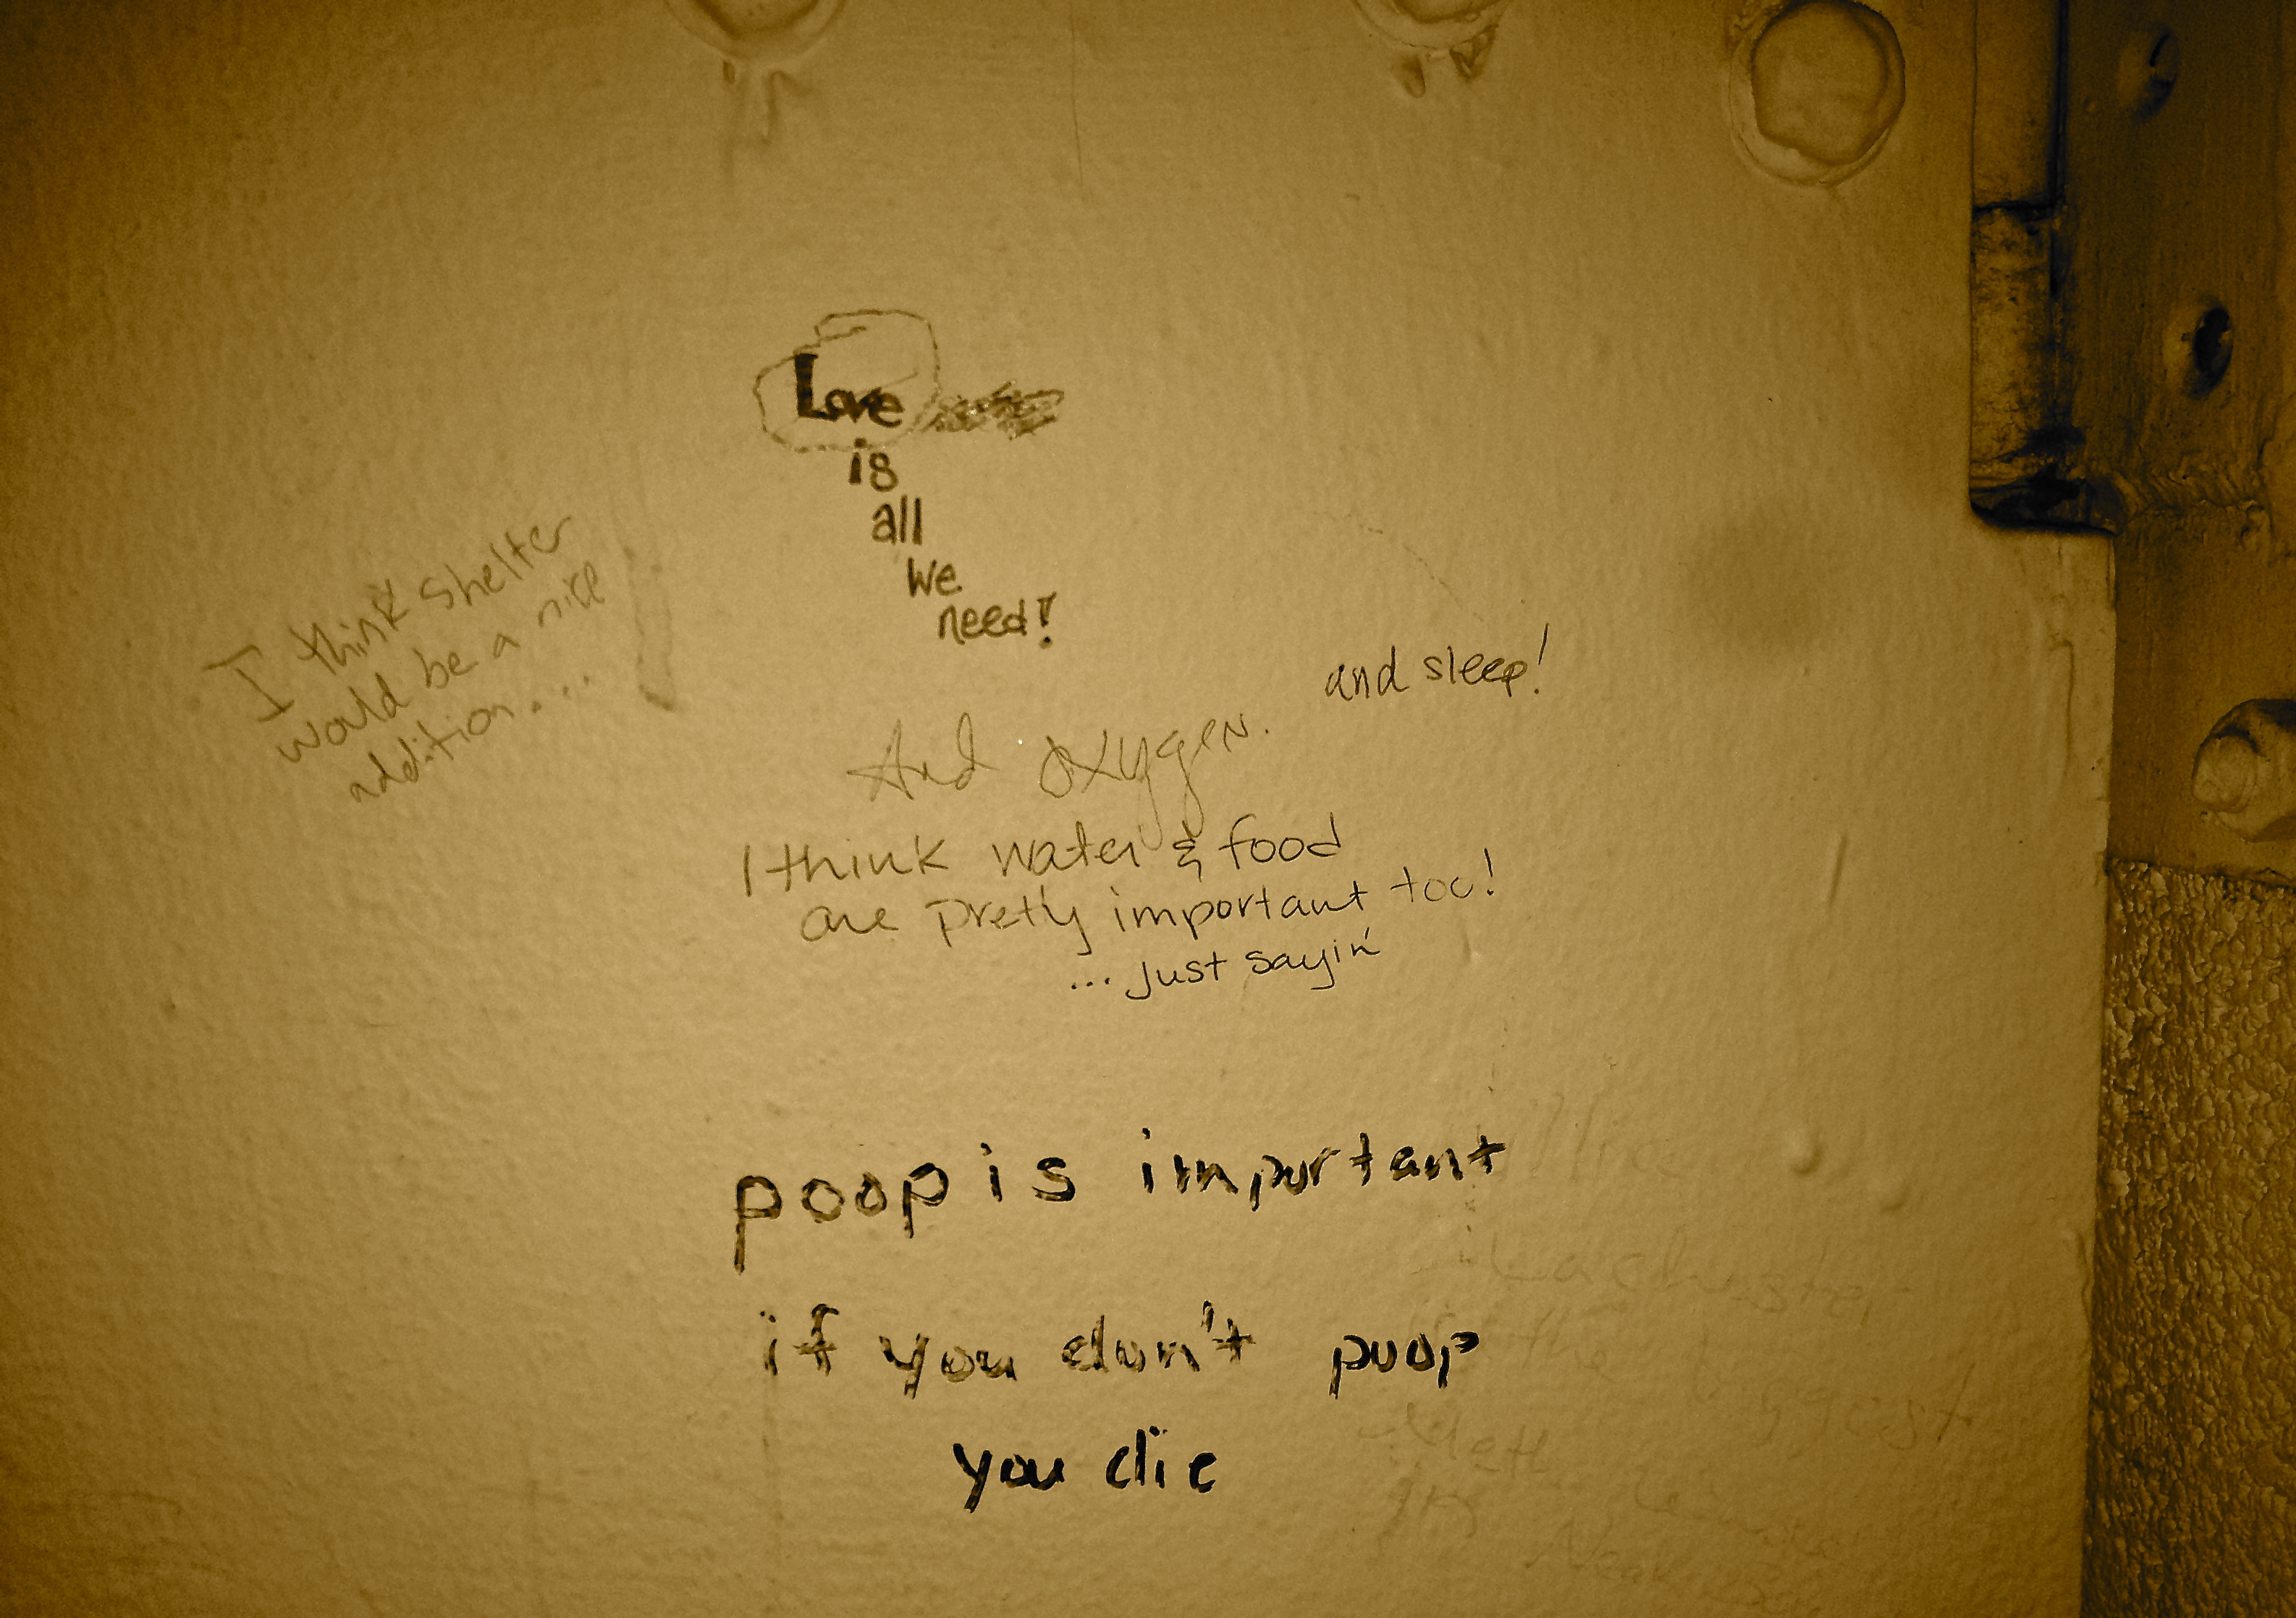 Love
is
all
we
need!
I think shelter
would be a nice
addition....
and sleep!
And oxygen.
I think water & food
are pretty important too!
... just sayin'
poop is important
if you don't poop
you die